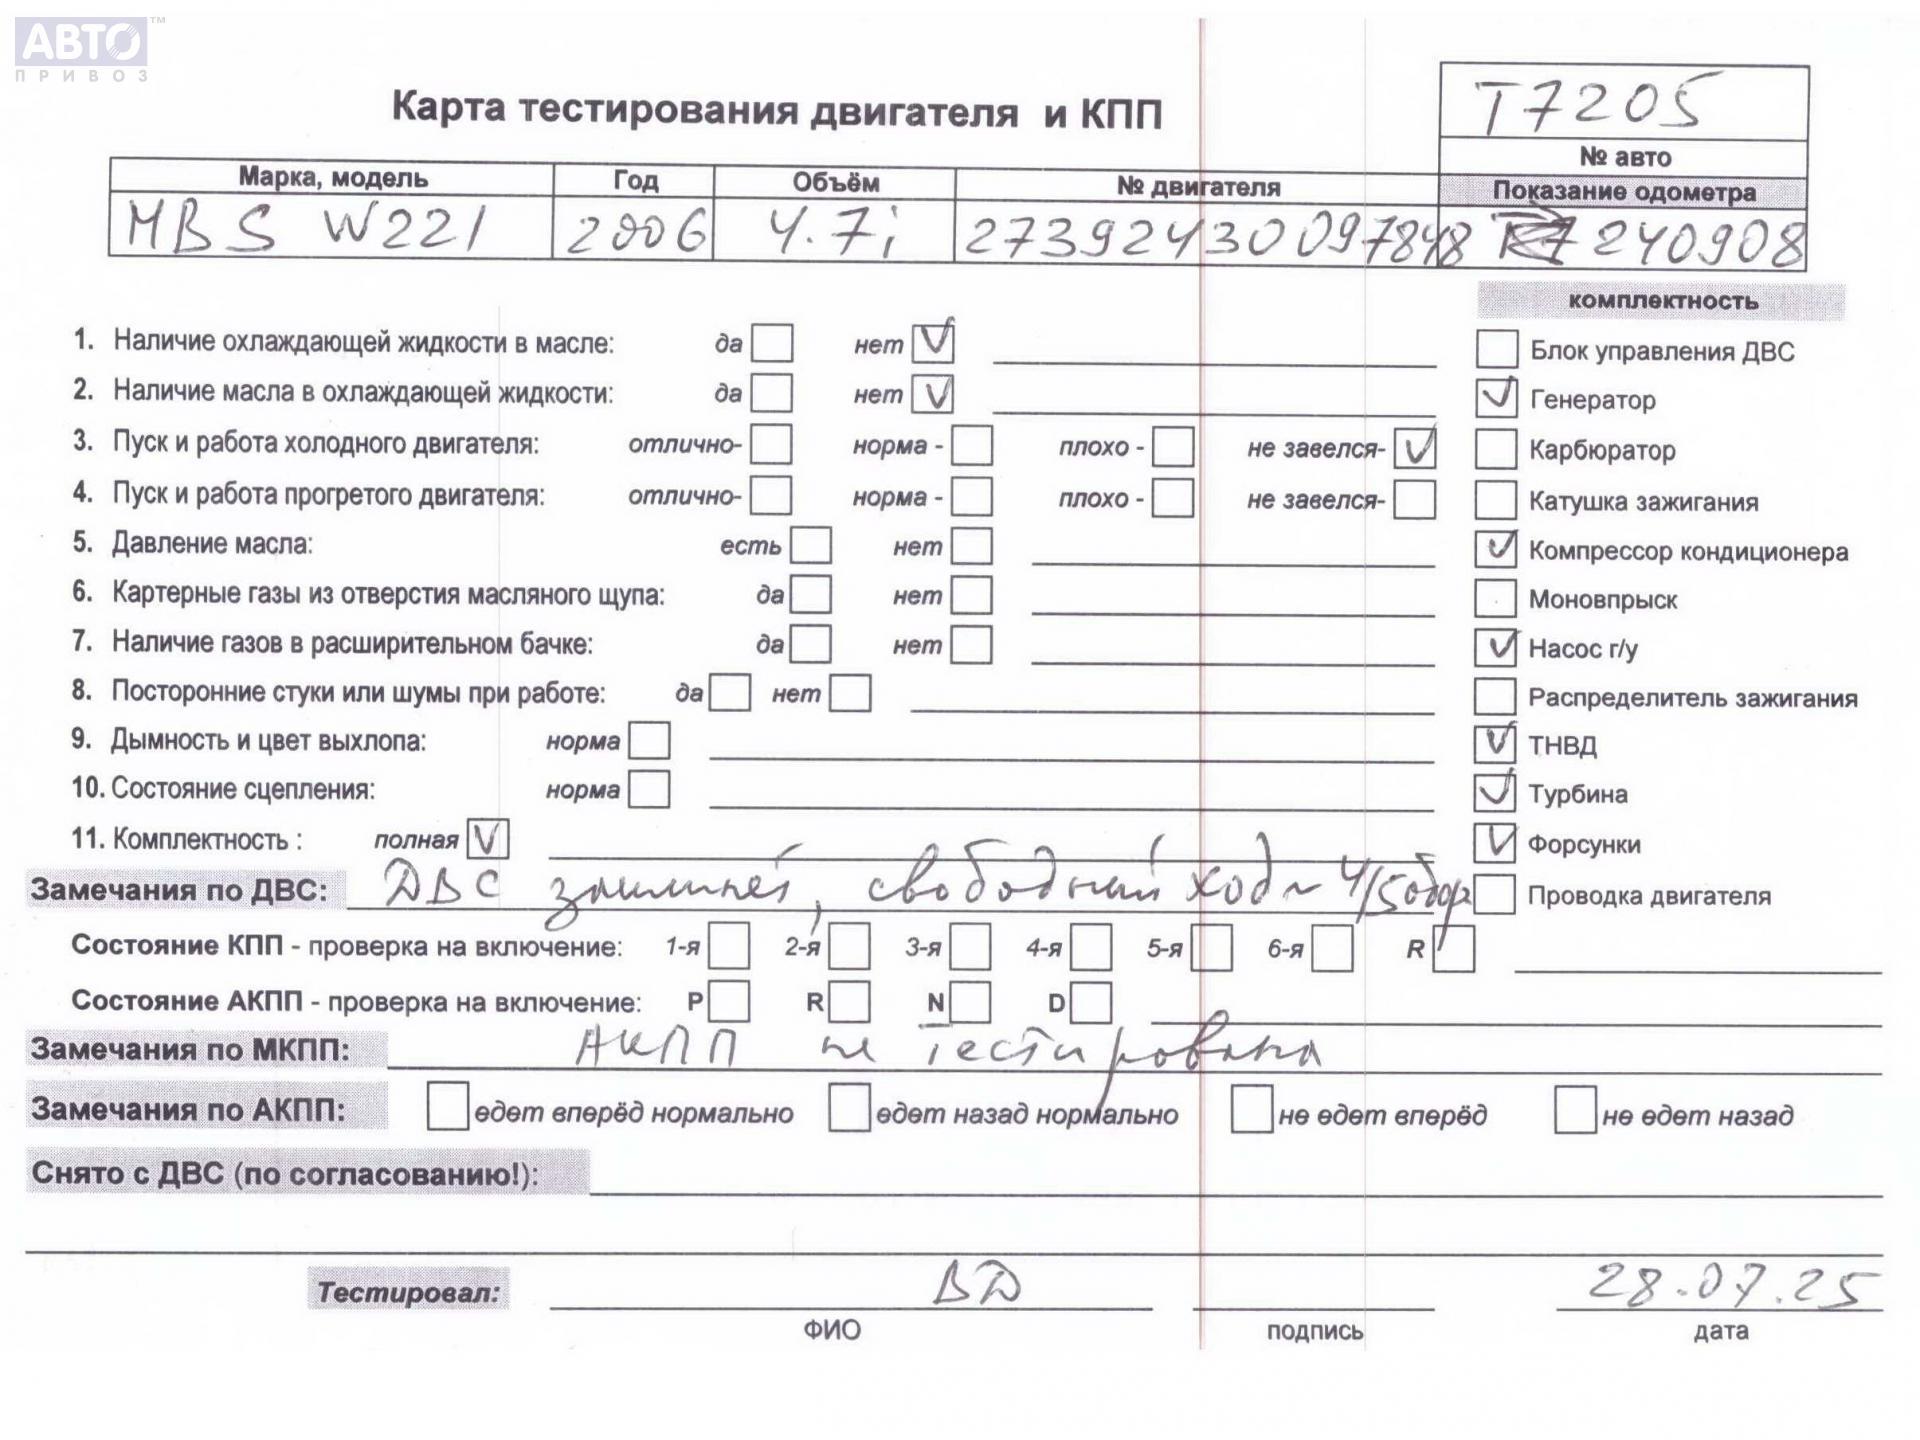 АВТО™
ПРИВОЗ
Карта тестирования двигателя и КПП
Т7205
№ авто
Марка, модель Год Объём № двигателя Показание одометра
MBS W221 2006 4.7i 27392430097848 240908
комплектность
1. Наличие охлаждающей жидкости в масле: да нет V
2. Наличие масла в охлаждающей жидкости: да нет V
3. Пуск и работа холодного двигателя: отлично- норма - плохо - не завелся- V
4. Пуск и работа прогретого двигателя: отлично- норма - плохо - не завелся-
5. Давление масла: есть нет
6. Картерные газы из отверстия масляного щупа: да нет
7. Наличие газов в расширительном бачке: да нет
8. Посторонние стуки или шумы при работе: да нет
9. Дымность и цвет выхлопа: норма
10. Состояние сцепления: норма
11. Комплектность : полная V
Блок управления ДВС
V Генератор
Карбюратор
Катушка зажигания
V Компрессор кондиционера
Моновпрыск
V Насос г/у
Распределитель зажигания
V ТНВД
V Турбина
V Форсунки
Проводка двигателя
Замечания по ДВС: ДВС свободный ход ~ 4/5 обор
Состояние КПП - проверка на включение: 1-я 2-я 3-я 4-я 5-я 6-я R
Состояние АКПП - проверка на включение: P R N D
Замечания по МКПП: АКПП не тестирована
Замечания по АКПП: едет вперёд нормально едет назад нормально не едет вперёд не едет назад
Снято с ДВС (по согласованию!):
Тестировал: ВД 28.07.25
ФИО подпись дата